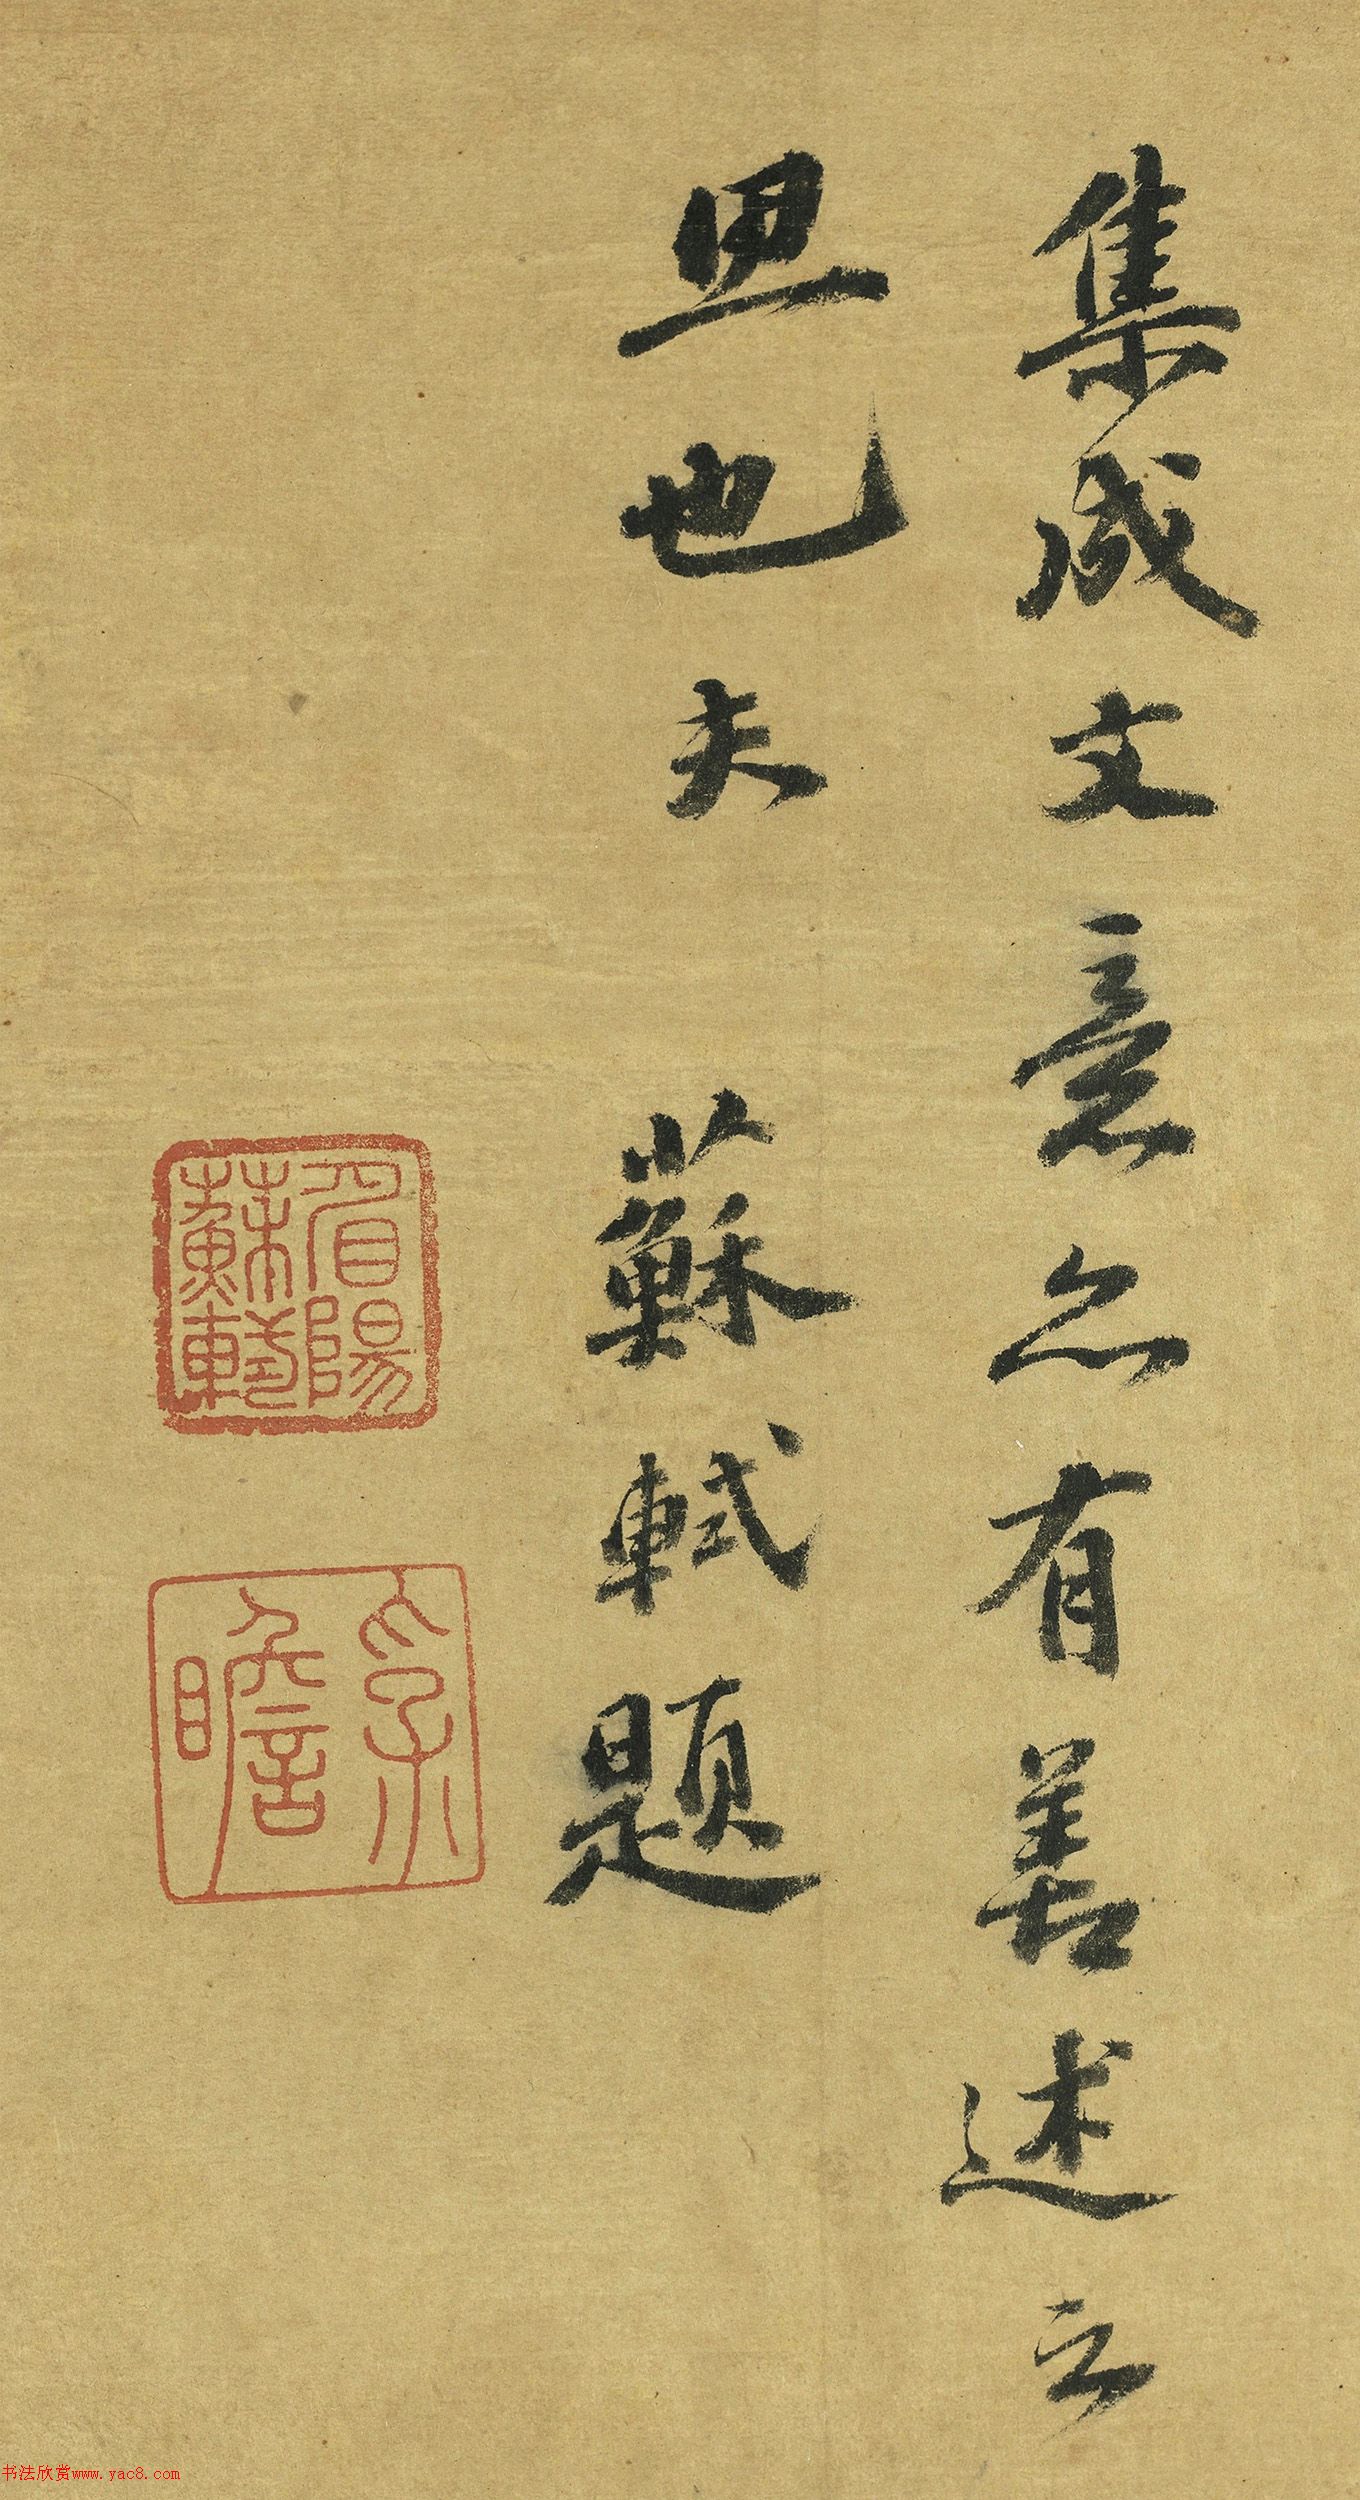 集成文意亦有善述之
思也夫 蘇軾題
眉陽蘇軾
書法欣赏www.yac8.com